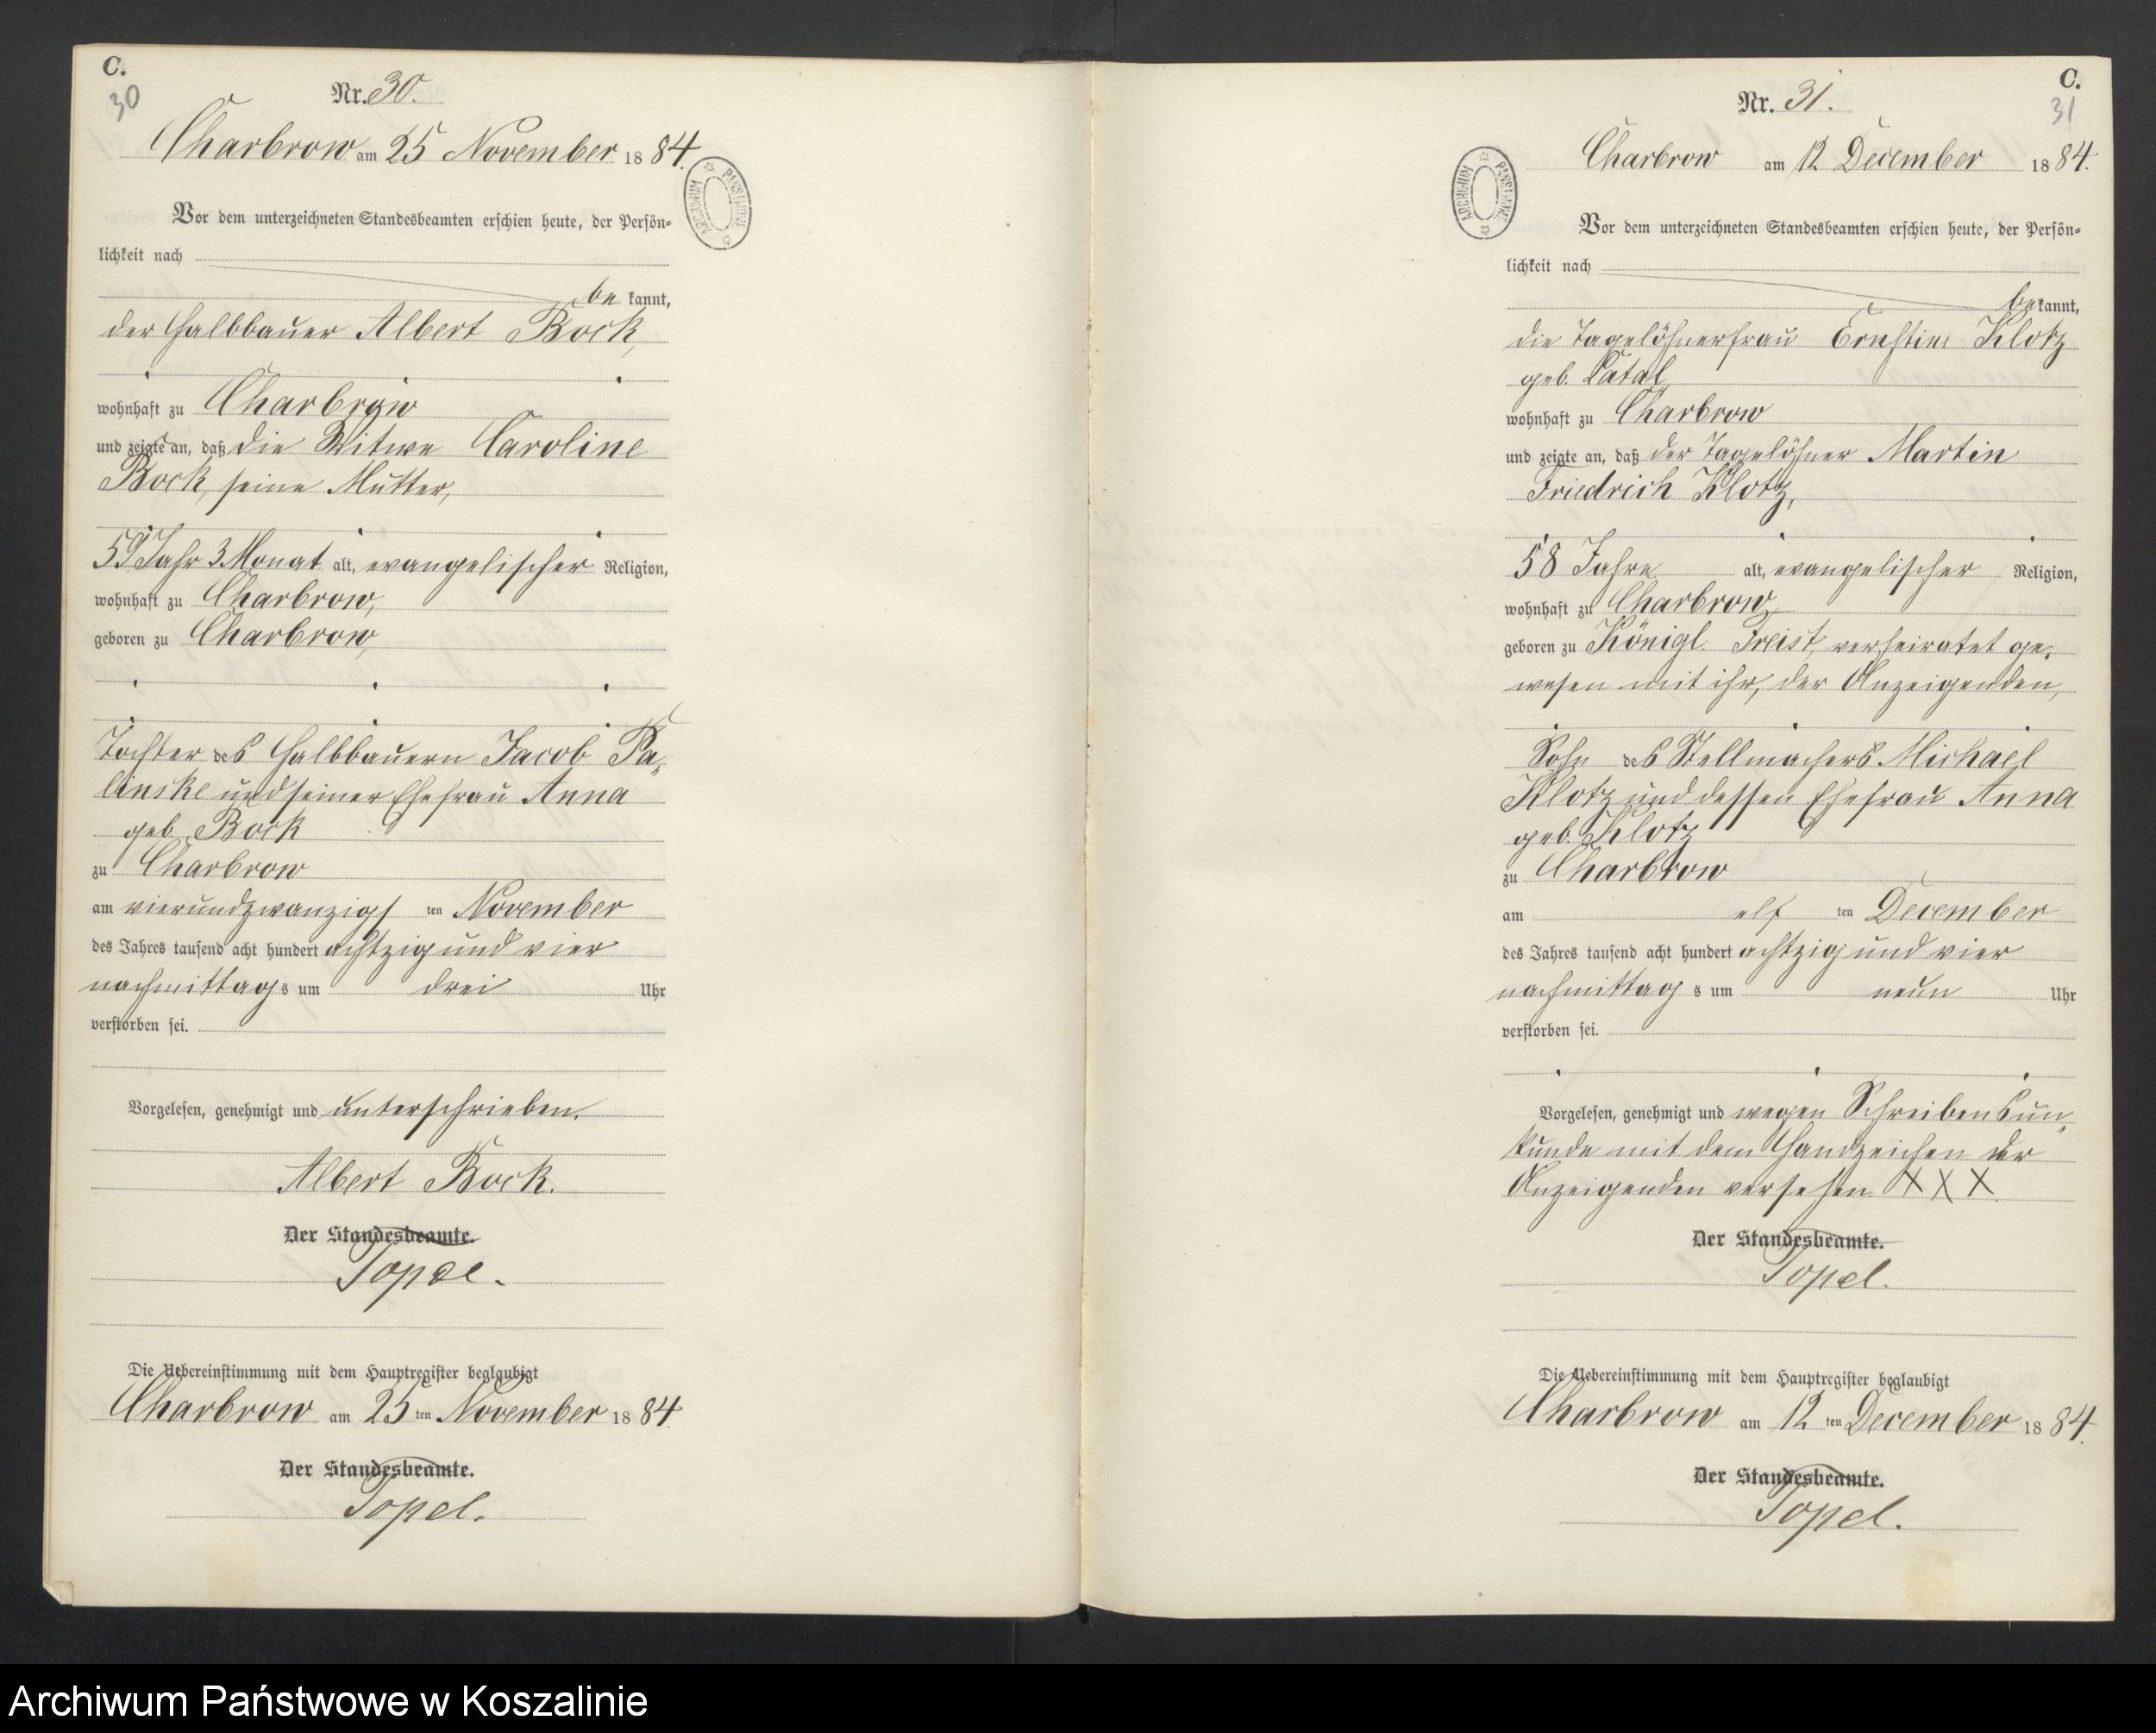 C.
30
Nr. 30.
Charbrow am 25 November 1884.
ARCHIWUM PAŃSTWOWE
Vor dem unterzeichneten Standesbeamten erschien heute, der Persön-
lichkeit nach
be kannt,
der Halbbauer Albert Bock,
wohnhaft zu Charbrow
und zeigte an, daß die Witwe Caroline
Bock, seine Mutter,
59 Jahr 3 Monat alt, evangelischer Religion,
wohnhaft zu Charbrow,
geboren zu Charbrow,
Tochter des Halbbauern Jacob Pa-
linske und seiner Ehefrau Anna
geb. Bock
zu Charbrow
am vierundzwanzigs ten November
des Jahres tausend acht hundert achtzig und vier
nachmittag s um drei Uhr
verstorben sei.
Vorgelesen, genehmigt und unterschrieben.
Albert Bock.
Der Standesbeamte.
Topel.
Die Uebereinstimmung mit dem Hauptregister beglaubigt
Charbrow am 25 ten November 1884.
Der Standesbeamte.
Topel.
C.
31
Nr. 31.
Charbrow am 12 December 1884.
ARCHIWUM PAŃSTWOWE
Vor dem unterzeichneten Standesbeamten erschien heute, der Persön-
lichkeit nach
be kannt,
die Tagelöhnerfrau Ernstine Klotz
geb. Latal
wohnhaft zu Charbrow
und zeigte an, daß der Tagelöhner Martin
Friedrich Klotz,
58 Jahre alt, evangelischer Religion,
wohnhaft zu Charbrow,
geboren zu Königl. Freist, verheiratet ge-
wesen mit ihr, der Anzeigenden,
Sohn des Stellmachers Michael
Klotz und dessen Ehefrau Anna
geb. Klotz
zu Charbrow
am elf ten December
des Jahres tausend acht hundert achtzig und vier
nachmittag s um neun Uhr
verstorben sei.
Vorgelesen, genehmigt und wegen Schreibensun-
kunde mit dem Handzeichen der
Anzeigenden versehen. X X X
Der Standesbeamte.
Topel.
Die Uebereinstimmung mit dem Hauptregister beglaubigt
Charbrow am 12 ten December 1884.
Der Standesbeamte.
Topel.
Archiwum Państwowe w Koszalinie